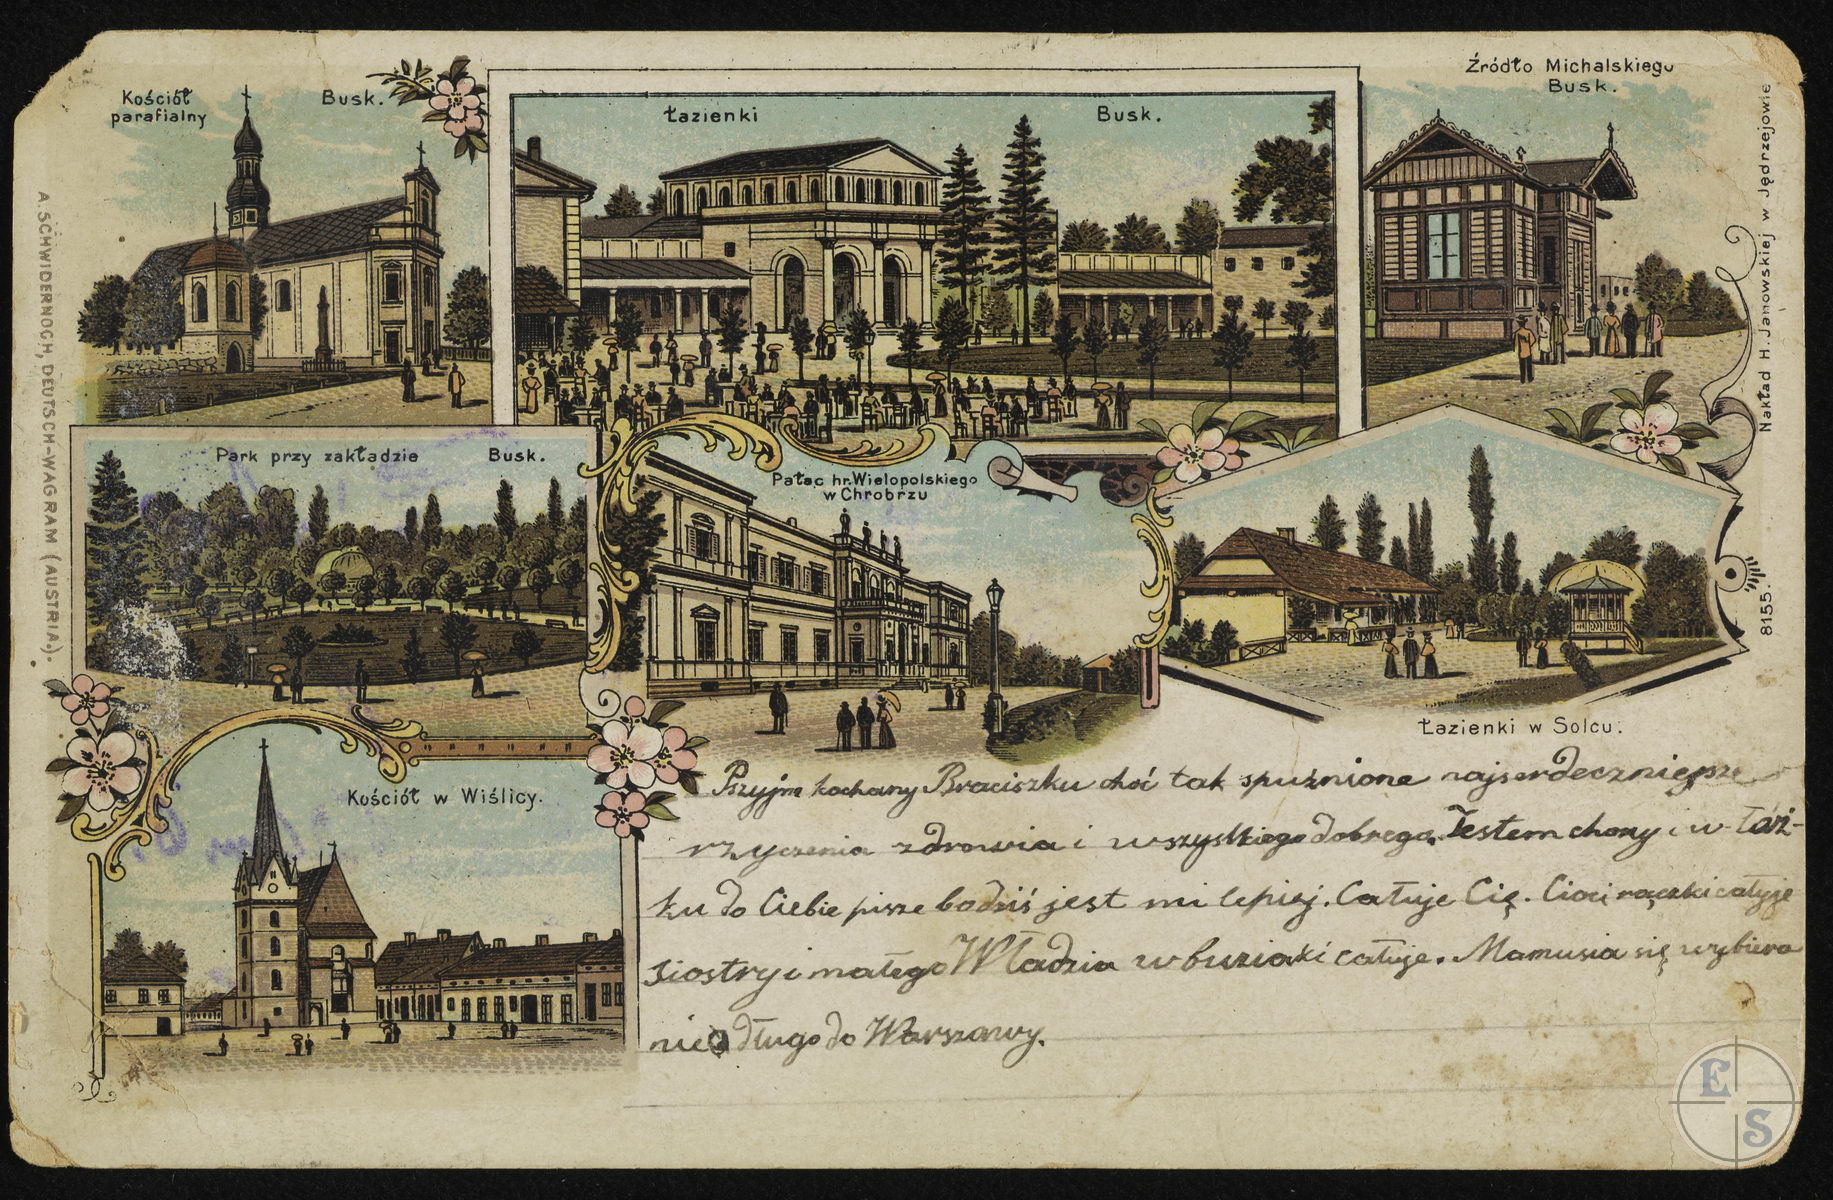 Kościół parafialny Busk.
Łazienki Busk.
Źródło Michalskiego
Busk.
A. SCHWIDERNOCH, DEUTSCH-WAGRAM (AUSTRIA).
Nakład H. Janowskiej w Jędrzejowie
8155.
Park przy zakładzie Busk.
Pałac hr. Wielopolskiego
w Chrobrzu
Łazienki w Solcu.
Kościół w Wiślicy.
Pszyjm kochany Braciszku choć tak spuźnione najserdeczniejsze
rzyczenia zdrowia i wszystkiego dobrego. Jestem chory i w łóż-
ku do Ciebie pisze bo dziś jest mi lepiej. Całuje Cię. Cioci rączki całuje
siostry i małego Władzia w buziaki całuje. Mamusia się wybiera
nie długo do Warszawy.
E S